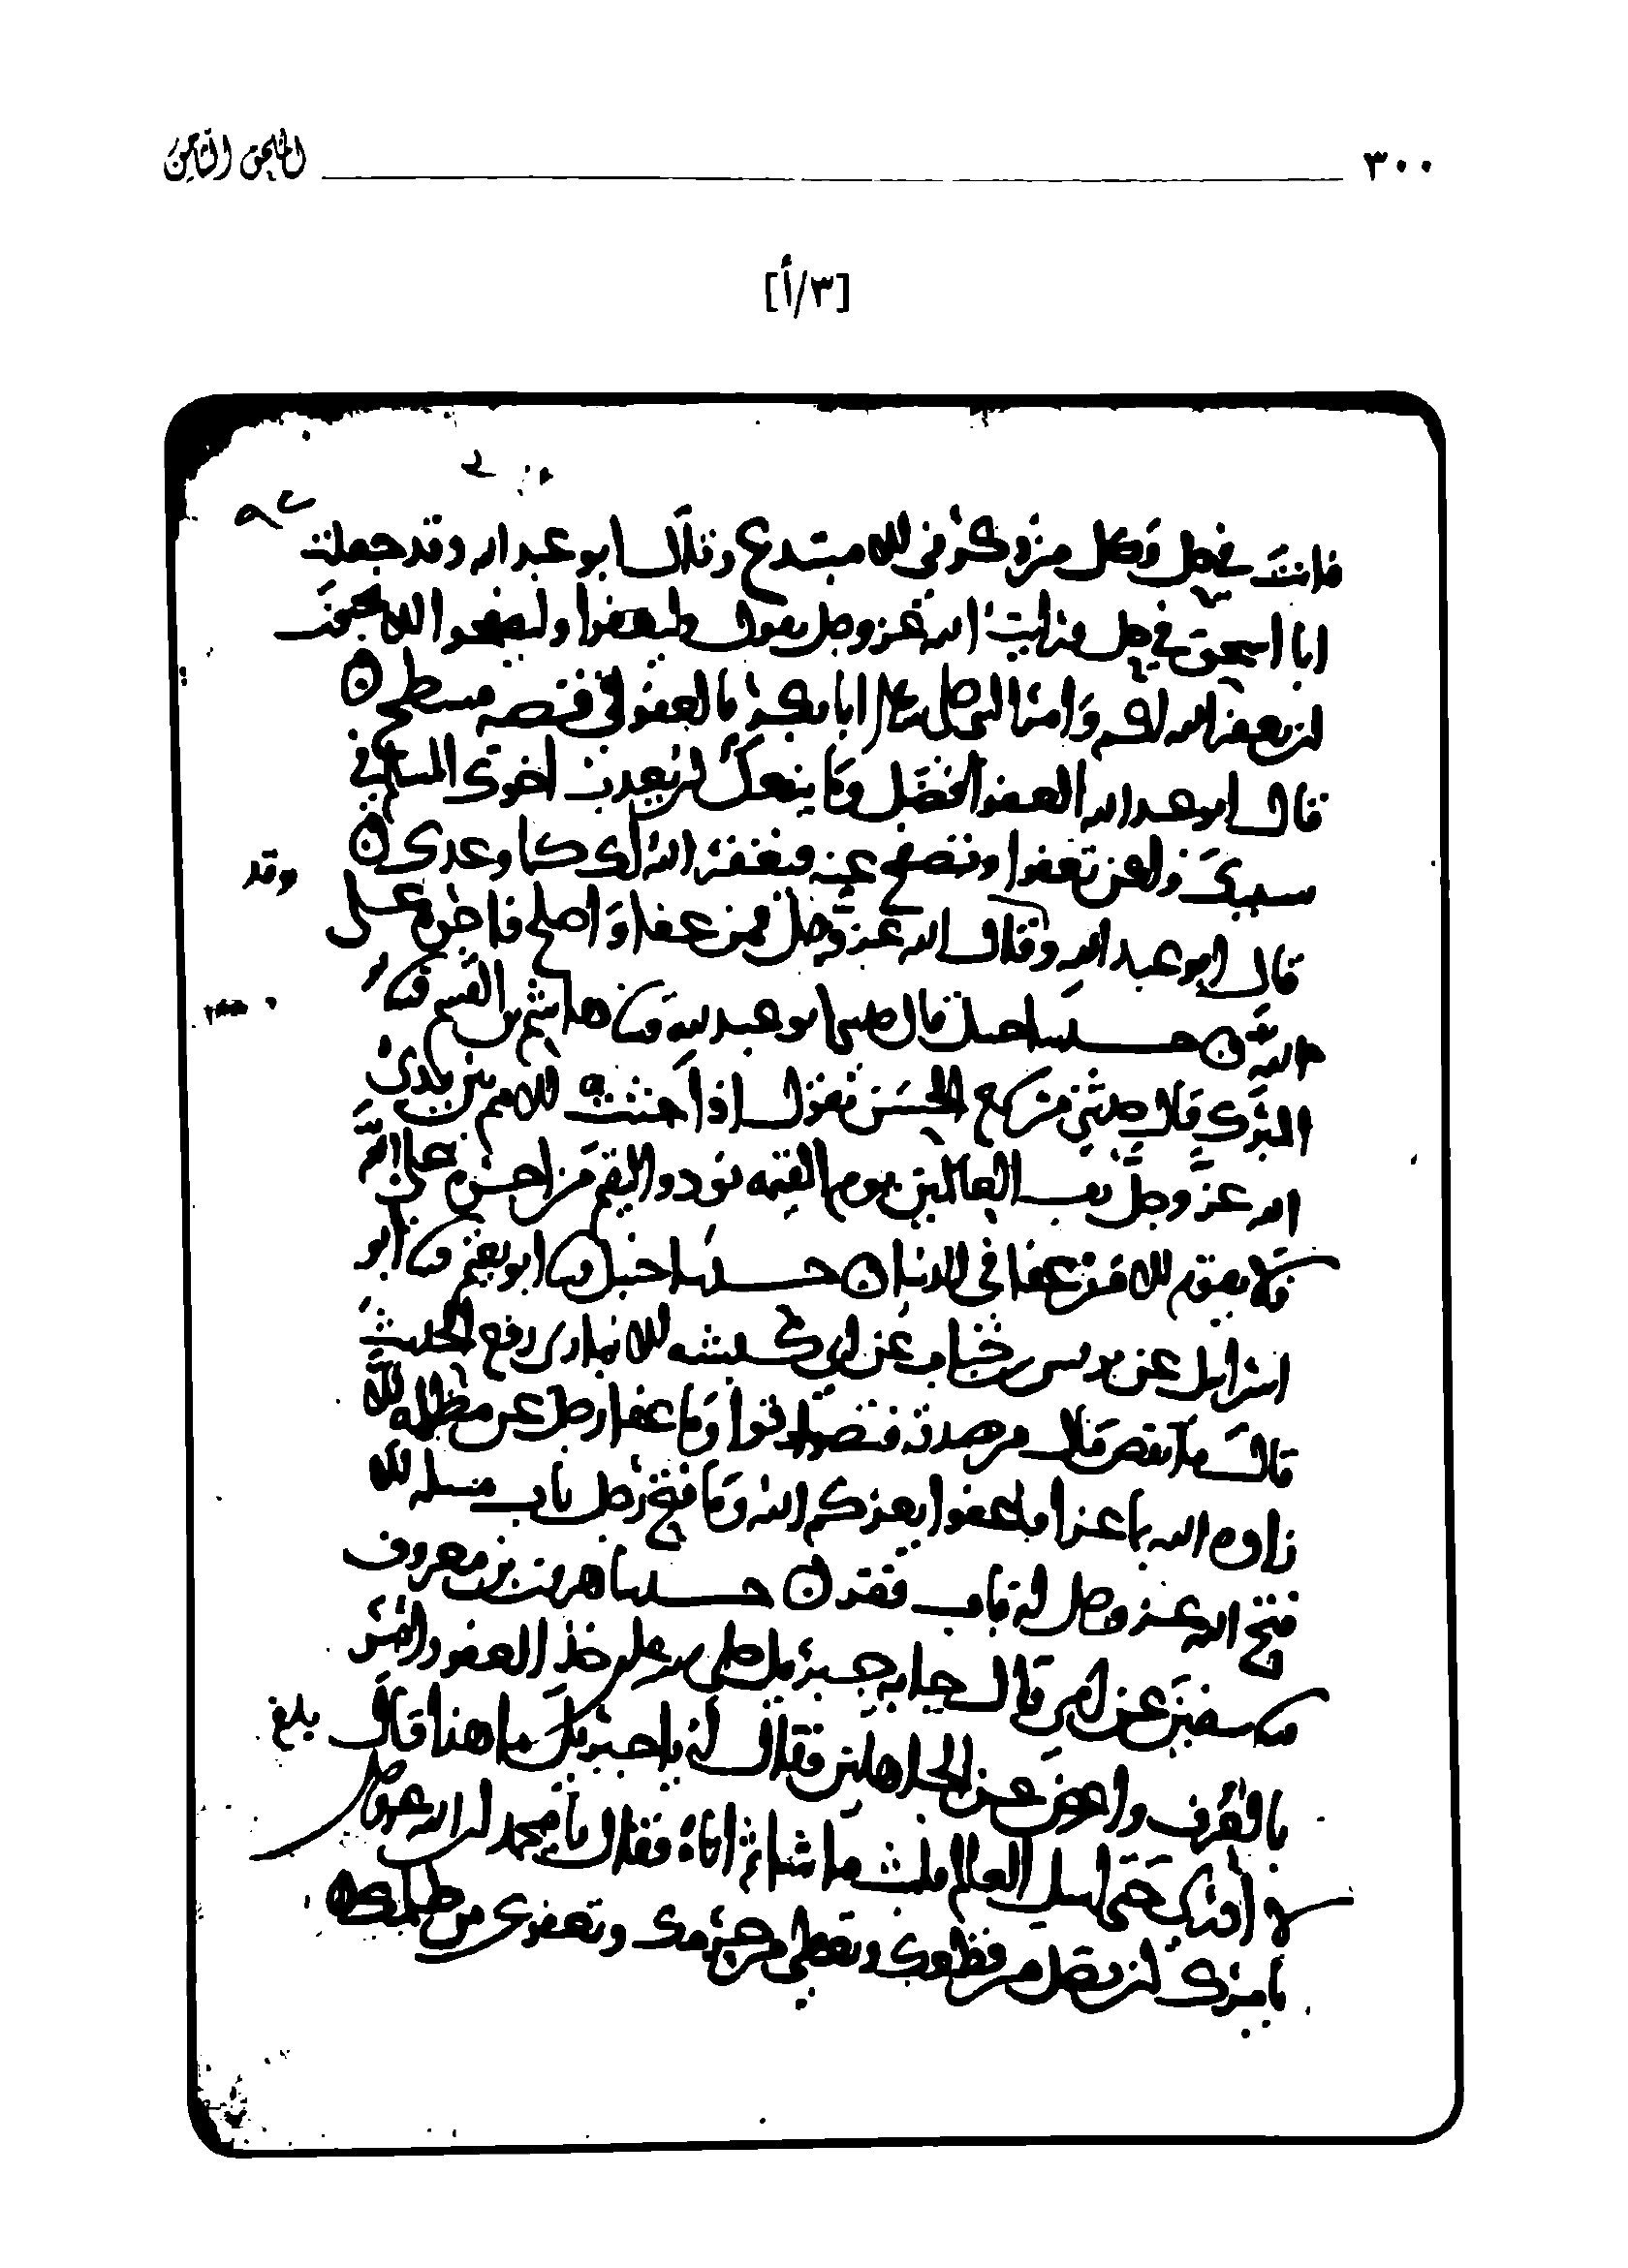 ٣٠٠ الملحق الثامن
[٣/أ]
فانت في حل وكل من ذكرني لله مبتدع وقال ابو عبد الله وقد جعلت
ابا اسحق في حل ورايت الله عز وجل يقول وليعفوا وليصفحوا الا تحبون
ان يغفر الله لكم وامر النبي صلى الله ابا بكر بالعفو في قصه مسطح
قال ابو عبد الله العفو افضل وما ينفعك ان يعذب اخوك المسلم في
سببك ولكن تعفوا وتصفح عنه فيغفر الله لك كما وعدك
وقد
قال ابو عبد الله وقال الله عز وجل فمن عفا واصلح فاجره على
الله حدثنا حنبل قال حدثني ابو عبد الله هاشم بن القسم
المبارك قال حدثني من سمع الحسن يقول اذا جثت الامم بين يدي
الله عز وجل رب العالمين يوم القيمه نودوا ليقم من اجره على الله
فلا يقوم الا من عفا في الدنيا حدثنا حنبل ابو نعيم
اسرايل عن عن ابي كبشه الانماري رفع الحديث
قال ما نقص مال من صدقه فتصدقوا وما عفا رجل عن مظلمه الا
زاده الله بها عزا فاعفوا يعزكم الله وما فتح رجل باب مسله الا
فتح الله عز وجل له باب فقر حدثنا هرون بن معروف
سفين عن قال جا به جبريل صلى عليه خذ العفو وامر
بالعرف واعرض عن الجاهلين فقال له يا جبريل ما هذا قال
بلغ
لا ادري حتى اسل العالم ثم اتاه فقال يا محمد ان الله عز وجل
يامرك ان تصل من قطعك وتعطي من حرمك وتعفو عن من ظلمك